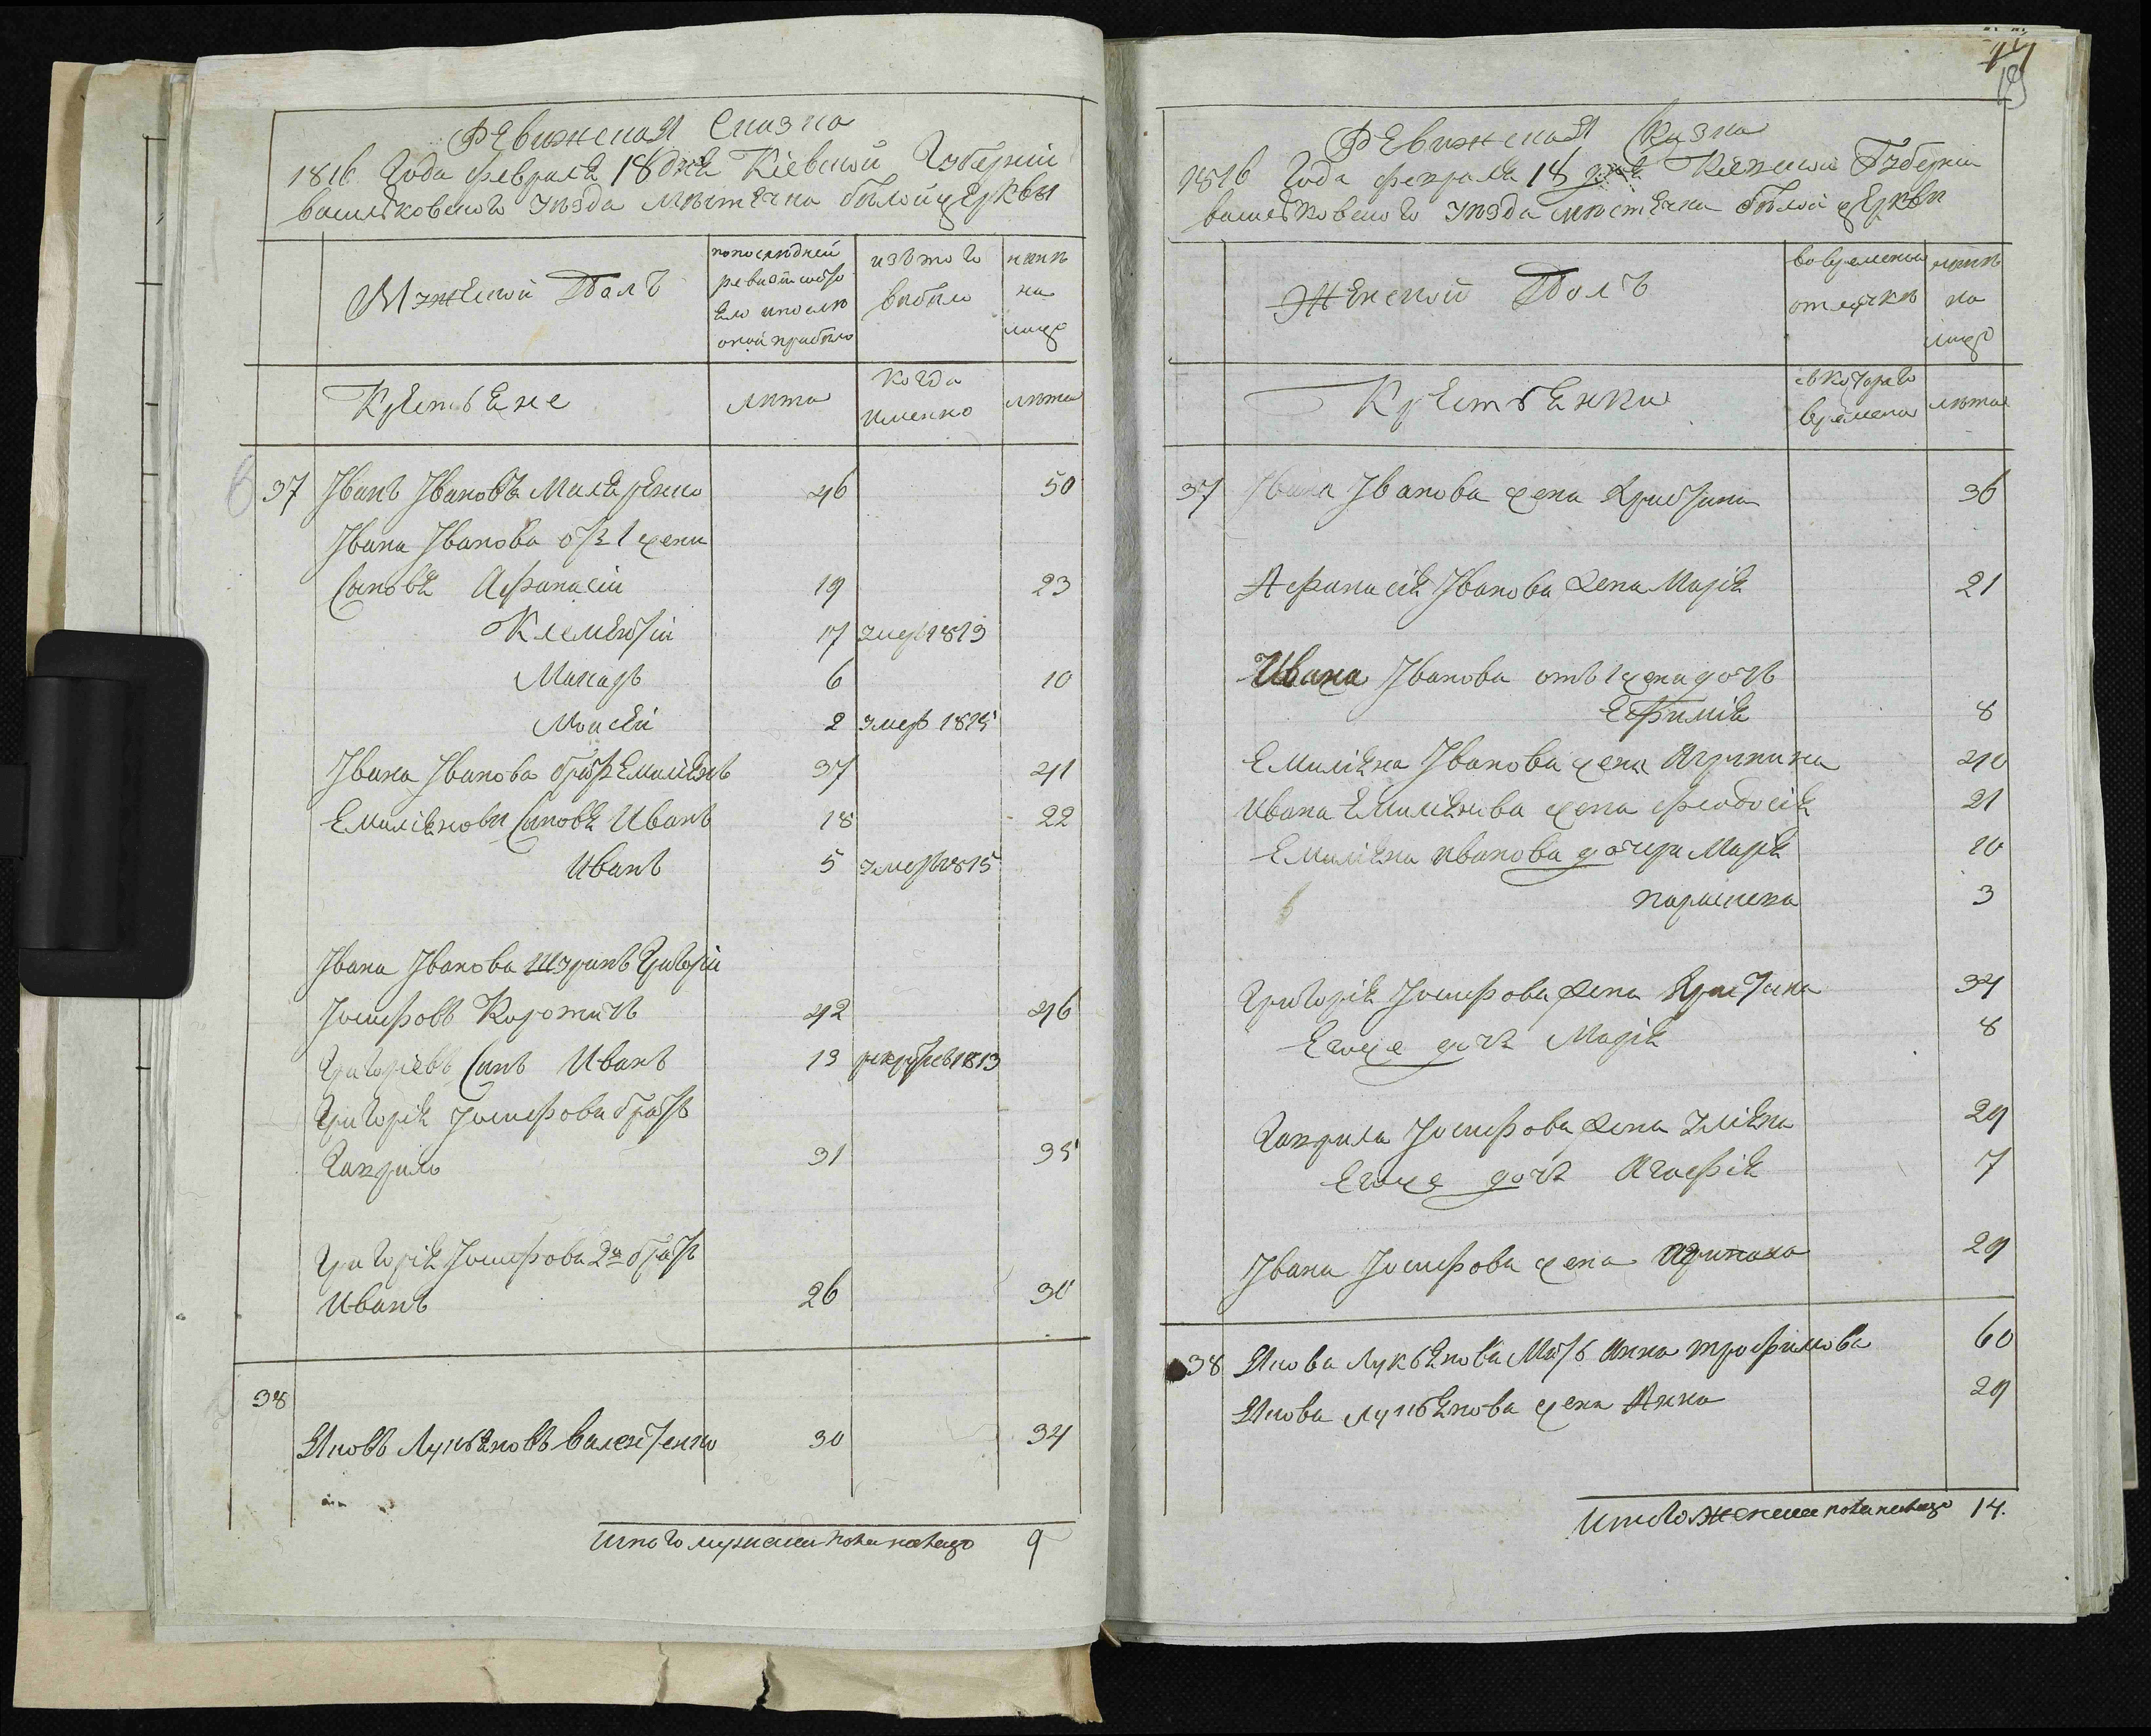 Ревижская Сказка
1816 Года февраля 18 дня Кіевской Губерніи
васильковского уезда местечка белой церквы
Мужеской Полъ
по последней
ревизіи состо
яло и после
оной прибыло
изъ того
выбыло
ныне
на
лицо
Крестьяне
лета
когда
именно
лета
37 Іванъ Івановъ Маляренко 46 50
Івана Іванова отъ 1 жени
Сыновя Афанасій 19 23
Клементій 17 умер 1813
Макаръ 6 10
Моисей 2 умер 1815
Івана Іванова братъ Емиліянъ 37 41
Емиліянови Сыновя Иванъ 18 22
Иванъ 5 умеръ 1815
Івана Іванова шуринъ Григорій
Іосифовъ Коротичъ 42 46
Григоріевъ Сынъ Иванъ 13 рекрутъ 1813
Григорія Іосифова братъ
Гаврило 31 35
Григорія Іосифова 2й братъ
Иванъ 26 30
38
Яковъ Лукьяновъ Валентенко 30 34
Итого мужеска пола налицо 9
Ревижская Сказка
1816 Года февраля 18 дня Кіевской Губерніи
васильковского уезда местечка белой церкви
Женской Полъ
во временной
отлучке
ныне
на
лицо
Крестьянки
съ котораго
времени
лета
37 Івана Іванова жена Христина 36
Афанасія Іванова жена Марія 21
Ивана Іванова отъ 1 жени дочъ
Ефимія 8
Емиліяна Іванова жена Агрипина 40
Ивана Емиліянова жена феодосія 21
Емиліяна иванова дочери Марія 10
параскева 3
Григорія Іосифова жена Христина 34
Егоже дочъ Марія 8
Гаврила Іосифова жена Уліяна 29
Егоже дочъ Агафія 7
Івана Іосифова жена Агрипина 29
38 Якова Лукьянова Мать Анна трофимова 60
Якова Лукьянова жена Анна 29
Итого женска пола налицо 14.